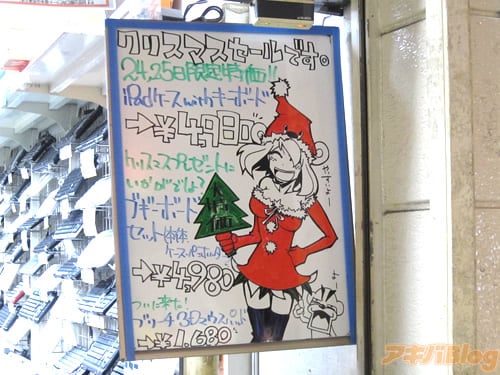 クリスマスセールです。
24,25日限定特価!!
iPadケースwithキーボード
→¥4,980
クリスマスプレゼントに
いかがでしょ?
ブギーボード
セット
→¥4,980
ついに来た!
ブリーチ3Dマウスパッド
→¥1,680
特価
やすいよ
アキバBlog